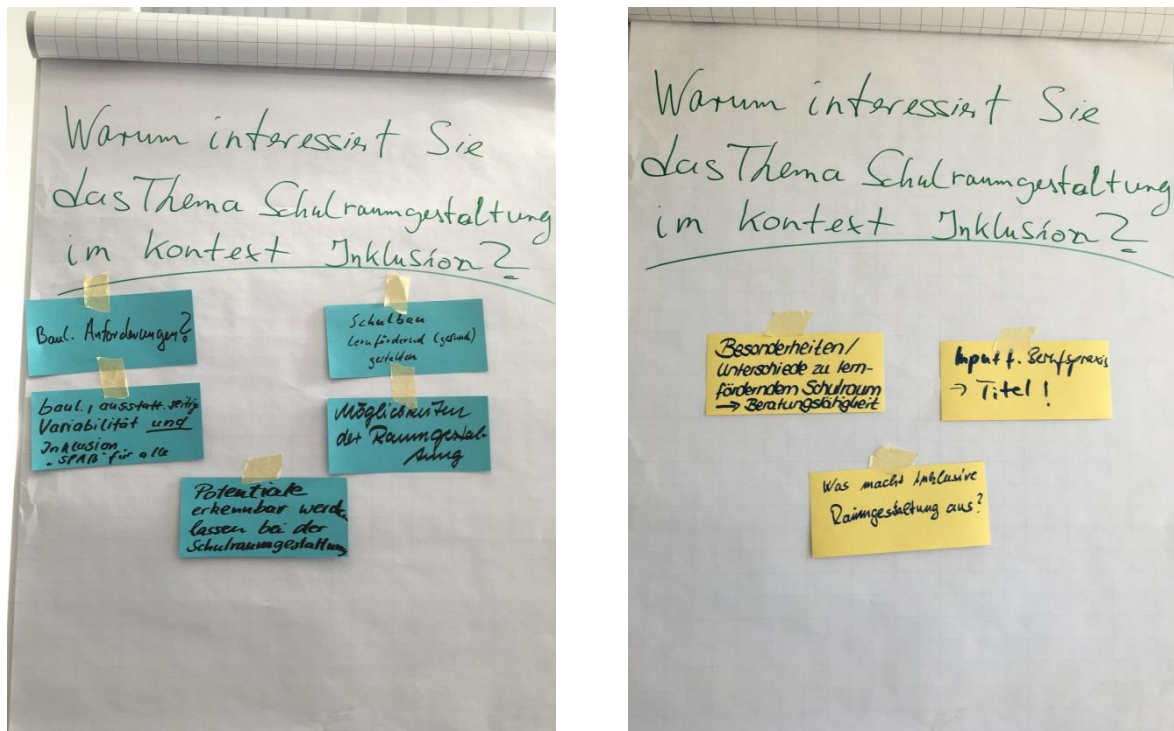 Warum interessiert Sie
das Thema Schulraumgestaltung
im Kontext Inklusion?
Baul. Anforderungen?
Schulbau
lernfördernd (gesund)
gestalten
baul., ausstatt.seitig
Variabilität und
Inklusion
"SPAß" für alle
Möglichkeiten
der Raumgestal-
tung
Potentiale
erkennbar werde
lassen bei der
Schulraumgestaltung
Warum interessiert Sie
das Thema Schulraumgestaltung
im Kontext Inklusion?
Besonderheiten/
Unterschiede zu lern-
förderndem Schulraum
→ Beratungstätigkeit
Input f. Berufspraxis
→ Titel!
Was macht inklusive
Raumgestaltung aus?